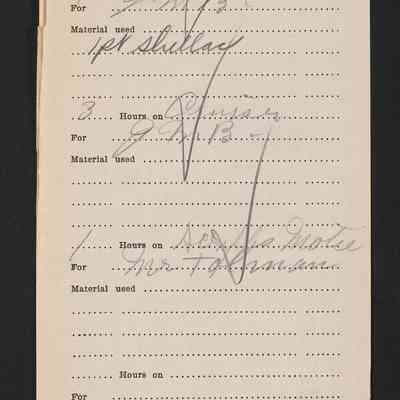 For J M B -
Material used
1 pt shellac
3 Hours on Cruiser
For J M B -
Material used
1 Hours on
For Mr Tolman
Material used
Hours on
For